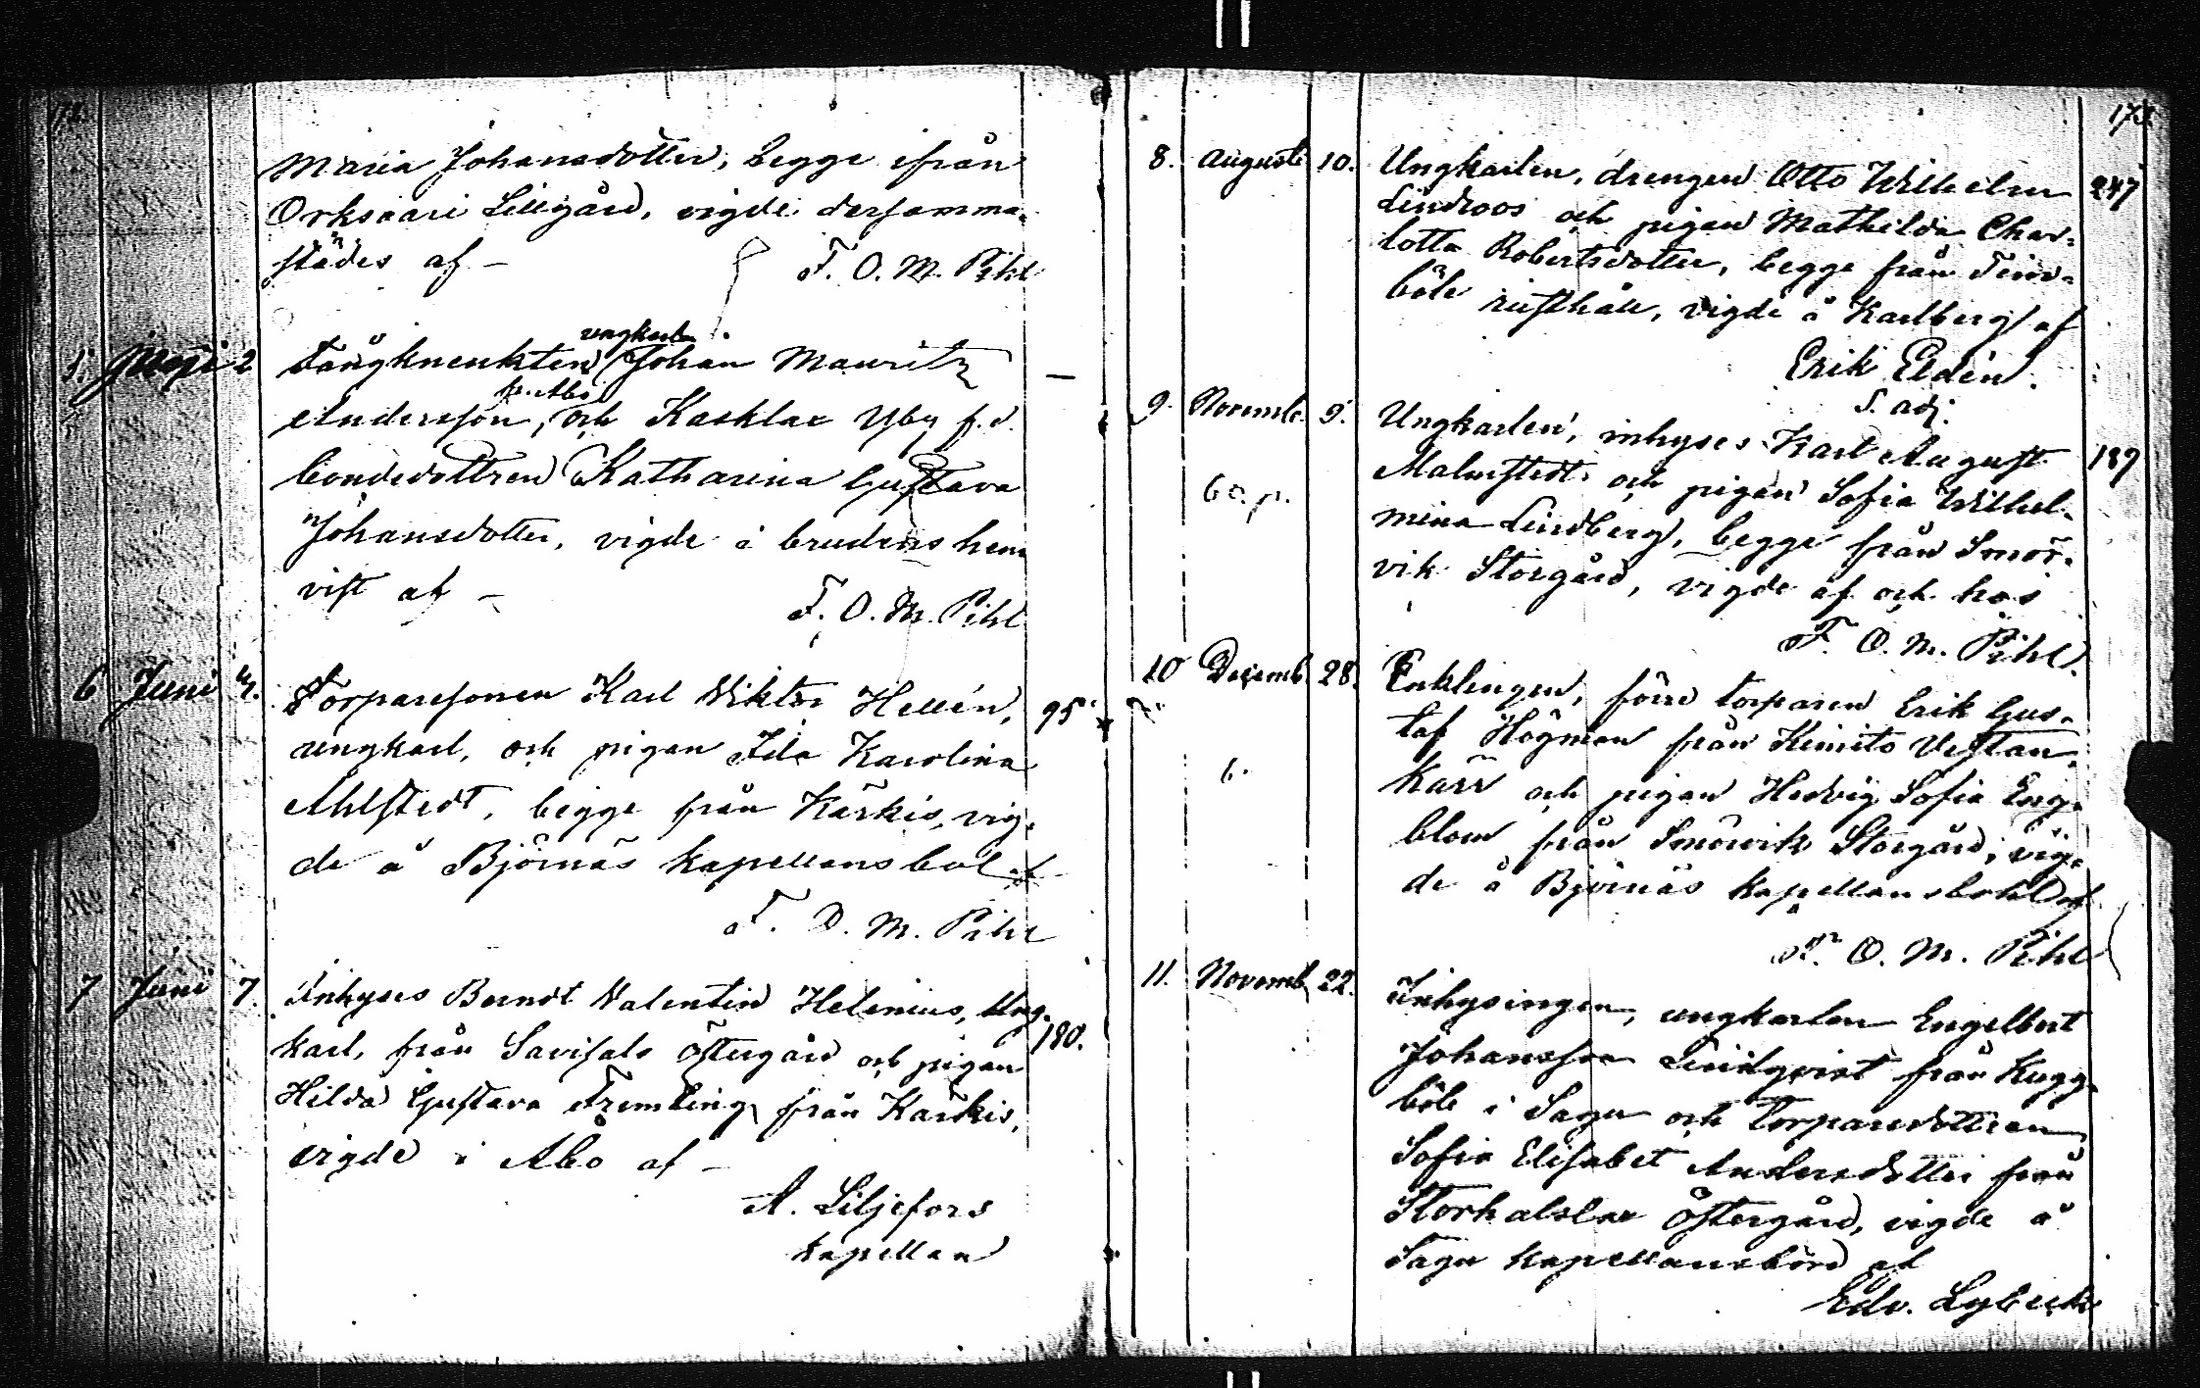 172.
Maria Johansdotter, begge ifrån
Orksaari Lillgård, vigde dersamma-
städes af –
F. O. M. Pihl
5. Maji 2 Fångknekten, ungkarlen Johan Mauritz –
Andersson, fr. Åbo, och Kasklax Yby f.d.
bondedottren Katharina Gustava
Johansdotter, vigde i brudens hem
vist af –
F. O. M. Pihl
6 Juni 4. Torparesonen Karl Viktor Hellén, 95
ungkarl, och pigan Ida Karolina
Ahlstedt, begge från Kärkis, vig-
de å Björnäs kapellansbol af
F. O. M. Pihl
7 Juni 7. Inhyses Berndt Valentin Helenius, ung-
karl, från Savisalo Östergård och pigan 180.
Hilda Gustava Fremling från Kärkis,
vigde i Åbo af –
A. Liljefors
kapellan
173.
8. Augusti 10. Ungkarlen, drengen Otto Wilhelm 247
Lindroos och pigan Mathilda Char-
lotta Robertsdotter, begge från
böle rusthåll, vigde å Karlberg af
Erik Eldén.
s. adj.
9. Novemb. 9. Ungkarlen, inhyses Karl August 189
Malmstedt och pigan Sofia Wilhel-
mina Lindberg, begge från Smör-
vik Storgård, vigde af och hos
F. O. M. Pihl.
10 Decemb. 28. Enklingen, förre torparen Erik Gus-
taf Högman från Kimito Vestan-
kärr och pigan Hedvig Sofia Eng-
blom från Smörvik Storgård, vig-
de å Björnäs kapellansbohl af
F. O. M. Pihl
11. Novemb. 22. Inhysingen, ungkarlen Engelbert
Johansson Lindqvist från Kugg-
böle i Sagu och torparedottren
Sofia Elisabet Andersdotter från
Storhalslax Östergård, vigde å
Sagu kapellansbord af
Edv. Lybeck